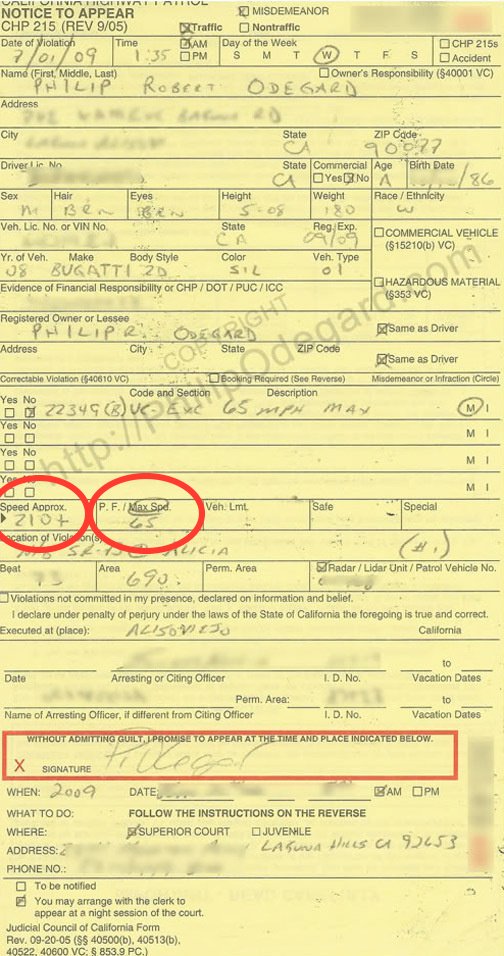 CALIFORNIA HIGHWAY PATROL
NOTICE TO APPEAR ☒ MISDEMEANOR
CHP 215 (REV 9/05) ☒ Traffic ☐ Nontraffic
Date of Violation Time ☒ AM ☐ PM Day of the Week ☐ CHP 215s
7/01/09 1:35 S M T W T F S ☐ Accident
Name (First, Middle, Last) ☐ Owner's Responsibility (§40001 VC)
PHILIP ROBERT ODEGARD
Address
City State ZIP Code
CA 90077
Driver Lic. No. State Commercial Age Birth Date
CA ☐ Yes ☒ No /86
Sex Hair Eyes Height Weight Race / Ethnicity
M BRN BRN 5-08 180 W
Veh. Lic. No. or VIN No. State Reg. Exp. ☐ COMMERCIAL VEHICLE
CA 09/09 (§15210(b) VC)
Yr. of Veh. Make Body Style Color Veh. Type
08 BUGATTI 2D SIL 01 ☐ HAZARDOUS MATERIAL
Evidence of Financial Responsibility or CHP / DOT / PUC / ICC (§353 VC)
Registered Owner or Lessee
PHILIP R. ODEGARD ☒ Same as Driver
Address City State ZIP Code
☒ Same as Driver
Correctable Violation (§40610 VC) ☐ Booking Required (See Reverse) Misdemeanor or Infraction (Circle)
Yes No Code and Section Description
☐ ☒ 22349(B) VC EXC 65 MPH MAX M I
Yes No
☐ ☐ M I
Yes No
☐ ☐ M I
Yes No
☐ ☐ M I
Speed Approx. P. F. / Max Spd. Veh. Lmt. Safe Special
210+ 65
Location of Violation(s)
N/B SR-73 @ ALICIA (#1)
Beat Area Perm. Area ☒ Radar / Lidar Unit / Patrol Vehicle No.
73 690
☐ Violations not committed in my presence, declared on information and belief.
I declare under penalty of perjury under the laws of the State of California the foregoing is true and correct.
Executed at (place): ALISO VIEJO California
to
Date Arresting or Citing Officer I. D. No. Vacation Dates
Perm. Area: to
Name of Arresting Officer, if different from Citing Officer I. D. No. Vacation Dates
WITHOUT ADMITTING GUILT, I PROMISE TO APPEAR AT THE TIME AND PLACE INDICATED BELOW.
X SIGNATURE
WHEN: 2009 DATE ☒ AM ☐ PM
WHAT TO DO: FOLLOW THE INSTRUCTIONS ON THE REVERSE
WHERE: ☒ SUPERIOR COURT ☐ JUVENILE
ADDRESS: LAGUNA HILLS CA 92653
PHONE NO.:
☐ To be notified
☒ You may arrange with the clerk to
appear at a night session of the court.
Judicial Council of California Form
Rev. 09-20-05 (§§ 40500(b), 40513(b),
40522, 40600 VC; § 853.9 PC.)
COPYRIGHT
http://PhilipOdegard.com